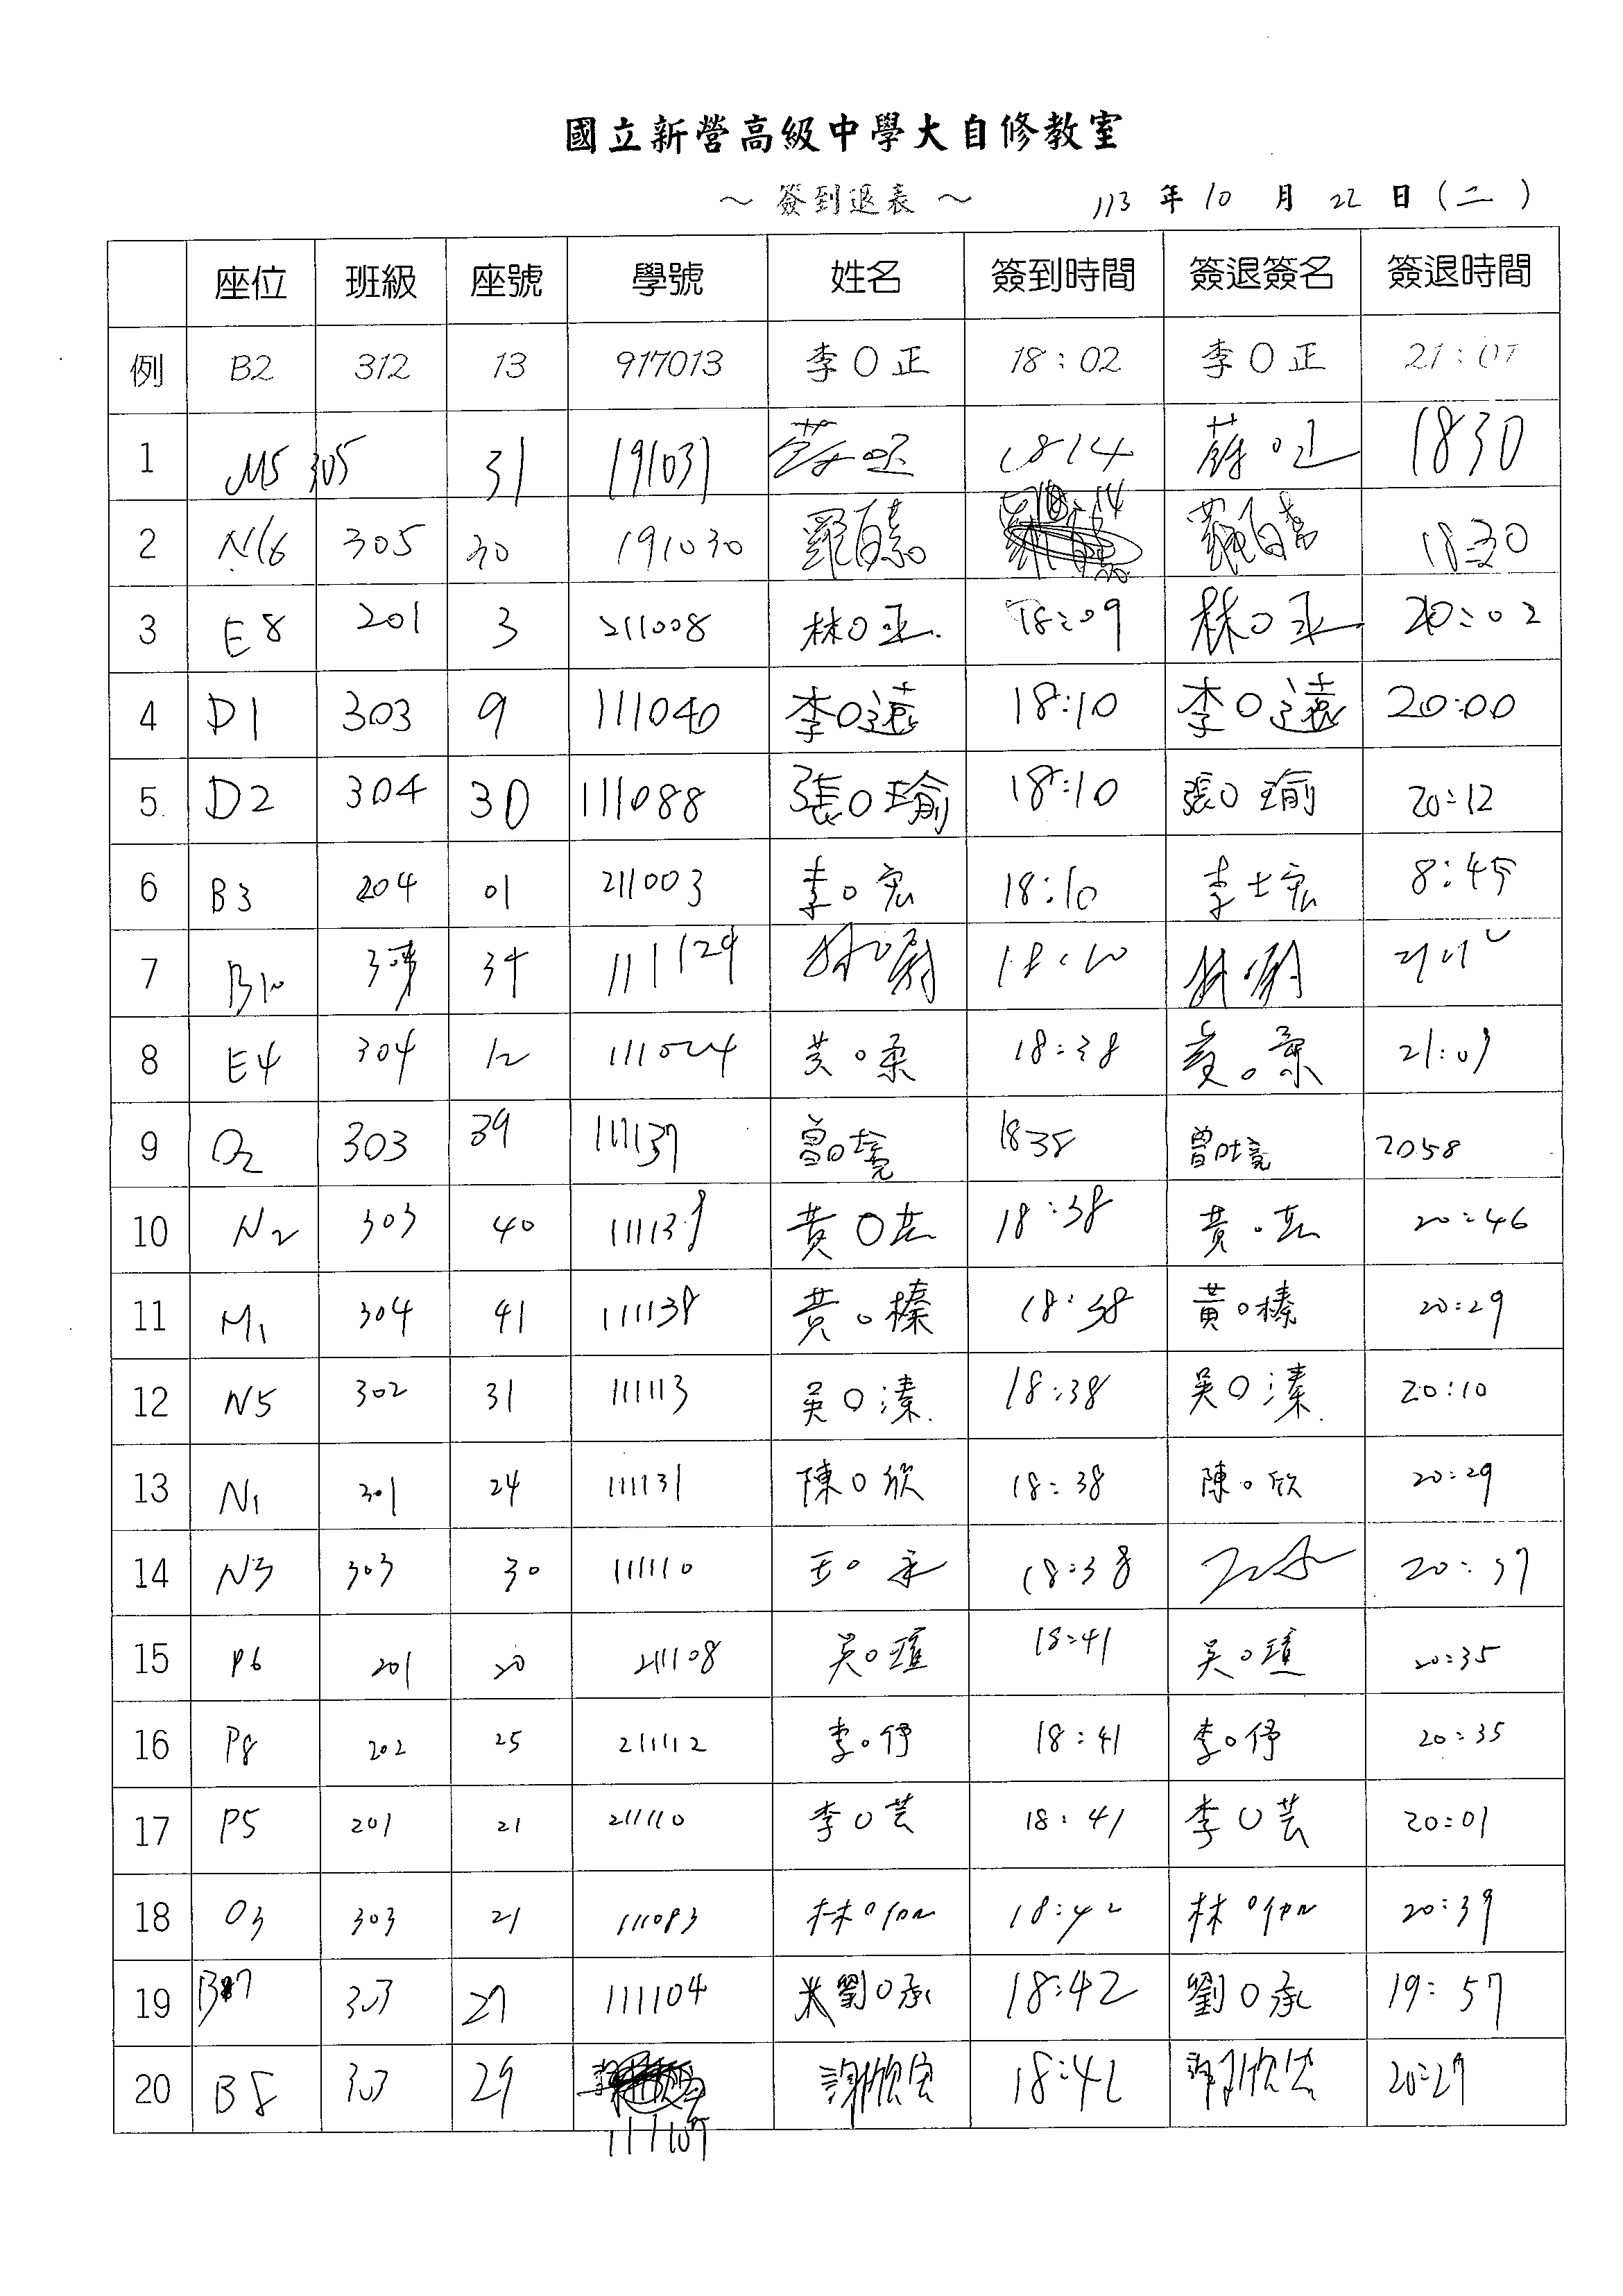 國立新營高級中學大自修教室
～ 簽到退表 ～ 113 年 10 月 22 日 (二)
座位 班級 座號 學號 姓名 簽到時間 簽退簽名 簽退時間
例 B2 312 13 917013 李O正 18:02 李O正 21:07
1 M5 305 31 191031 1814 1830
2 N16 305 30 191030 18:14 18:30
3 E8 201 3 211008 林O丞 18:09 林O丞 20:02
4 D1 303 9 111040 李O遠 18:10 李O遠 20:00
5 D2 304 30 111088 張O瑜 18:10 張O瑜 20:12
6 B3 204 01 211003 李O宏 18:10 李士宏 8:45
7 B10 34 111129 18:10
8 E4 304 12 111024 18:38 21:03
9 O2 303 39 111137 曾O境 1838 曾O境 2058
10 N2 303 40 111138 黃O芸 18:38 黃O芸 20:46
11 M1 304 41 111138 黃O榛 18:38 黃O榛 20:29
12 N5 302 31 111113 吳O溱 18:38 吳O溱 20:10
13 N1 301 24 111131 陳O欣 18:38 陳O欣 20:29
14 N3 303 30 111110 18:38 20:37
15 P6 201 20 211108 吳O瑄 18:41 吳O瑄 20:35
16 P8 202 25 211112 李O伃 18:41 李O伃 20:35
17 P5 201 21 211110 李O芸 18:41 李O芸 20:01
18 O3 303 21 111083 林O 18:42 林O 20:39
19 B7 303 27 111104 劉O承 18:42 劉O承 19:57
20 B8 303 29 謝欣宏 18:42 謝欣宏 20:27
111107